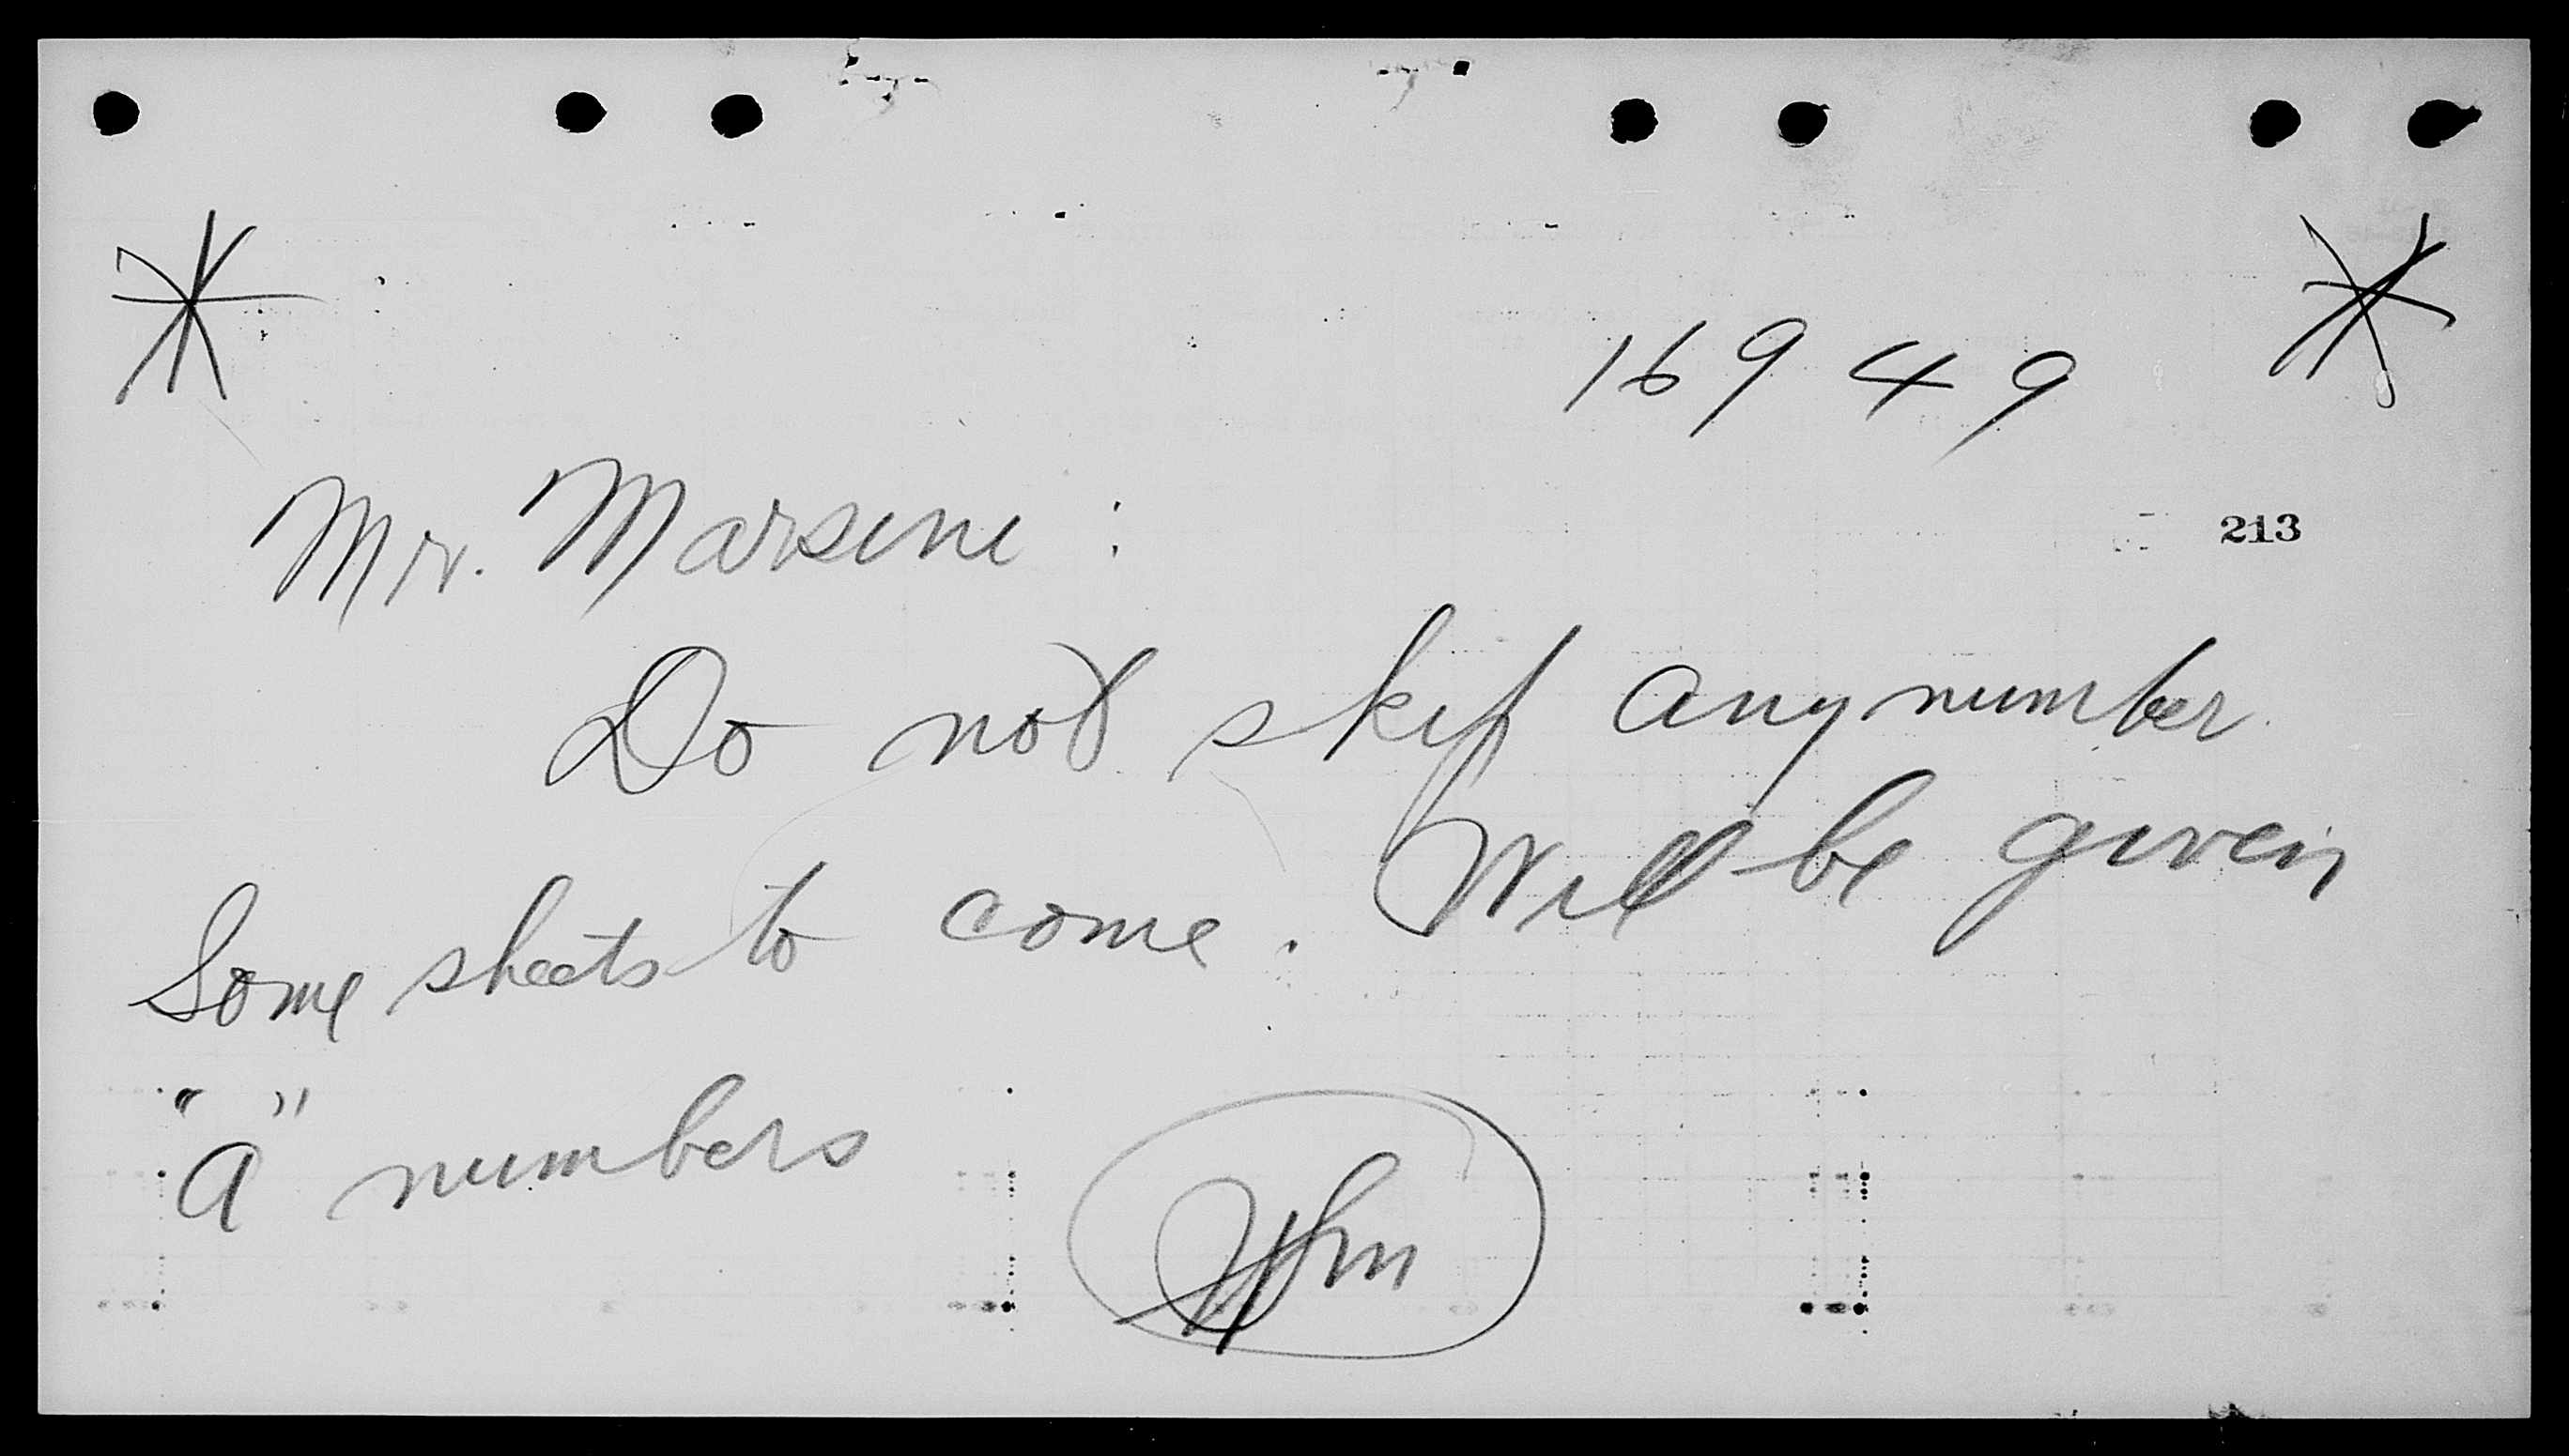 * *
16949
Mr. Marsini :
213
Do not skip any number.
Some sheets to come. Will be given
"a" numbers